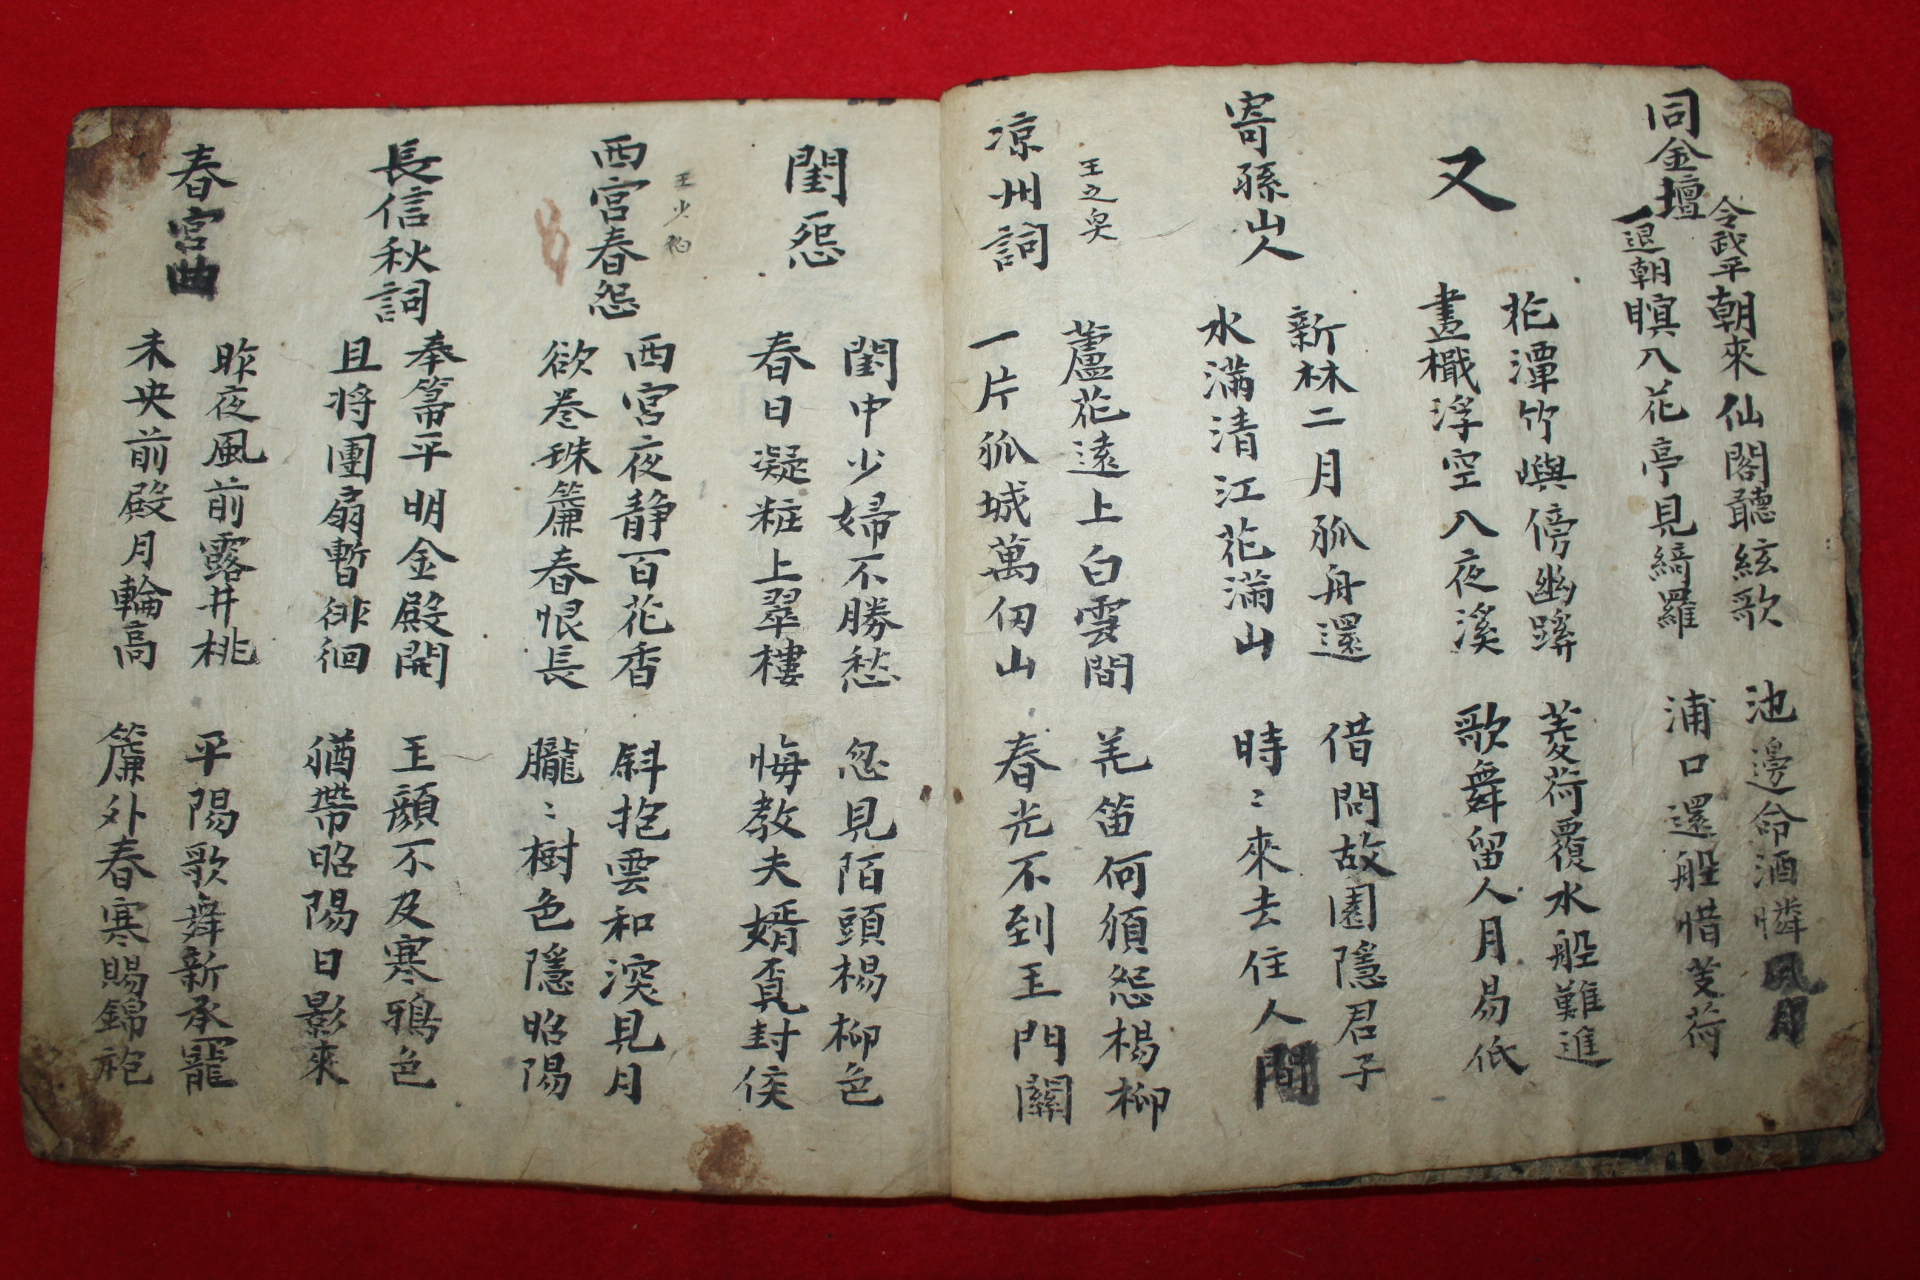 同金壇
令武平
一退朝
朝來仙閣聽絃歌
瞑入花亭見綺羅
池邊命酒憐風月
浦口還船惜芰荷
又
花潭竹嶼傍幽蹊
畫檝浮空入夜溪
菱荷覆水船難進
歌舞留人月易低
寄孫山人
新林二月孤舟還
水滿清江花滿山
借問故園隱君子
時〻來去住人間
涼州詞
王之奐
蘆花遠上白雲間
一片孤城萬仞山
羌笛何須怨楊柳
春光不到玉門關
閨怨
閨中少婦不勝愁
春日凝粧上翠樓
忽見陌頭楊柳色
悔教夫婿覓封侯
西宮春怨
王少伯
西宮夜静百花香
欲卷珠簾春恨長
斜抱雲和深見月
朧〻樹色隱昭陽
長信秋詞
奉箒平明金殿開
且將團扇暫徘徊
玉顔不及寒鴉色
猶帶昭陽日影來
春宮曲
昨夜風前露井桃
未央前殿月輪高
平陽歌舞新承寵
簾外春寒賜錦袍